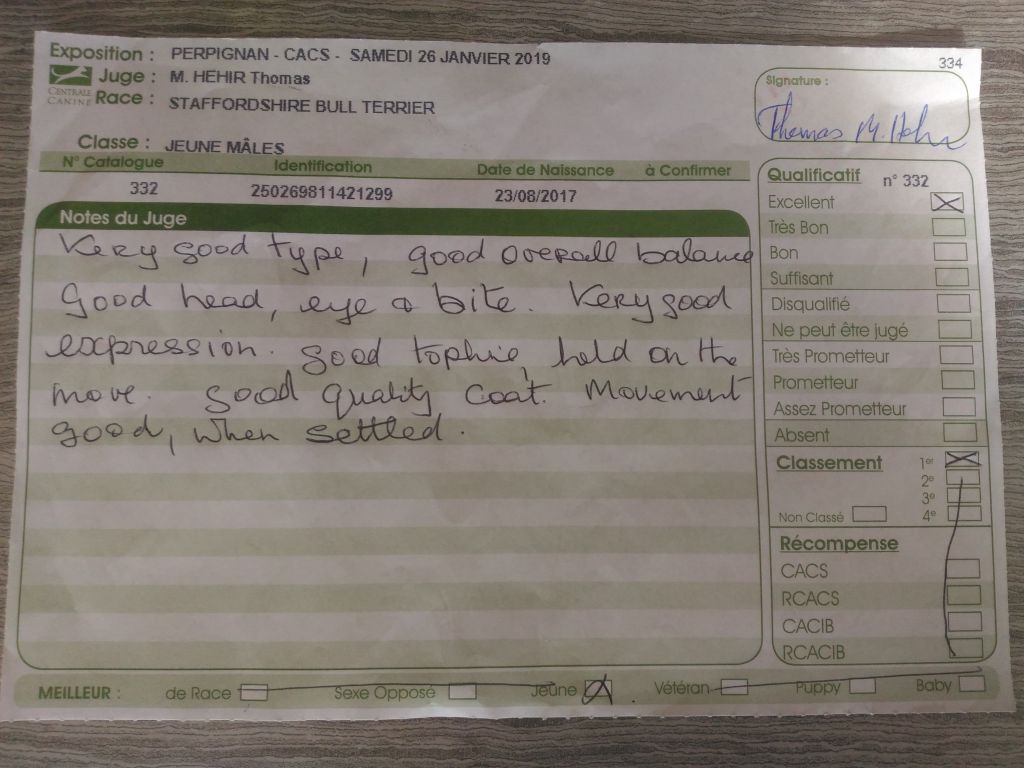 Exposition : PERPIGNAN - CACS - SAMEDI 26 JANVIER 2019
334
Juge : M. HEHIR Thomas
CENTRALE CANINE
Race : STAFFORDSHIRE BULL TERRIER
Signature :
Thomas M. Hehir
Classe : JEUNE MÂLES
N° Catalogue Identification Date de Naissance à Confirmer
332 250269811421299 23/08/2017
Notes du Juge
Very good type, good overall balance
Good head, eye & bite. Very good
expression. good tophie, held on the
move. good quality coat. Movement
good, when settled.
Qualificatif n° 332
Excellent
Très Bon
Bon
Suffisant
Disqualifié
Ne peut être jugé
Très Prometteur
Prometteur
Assez Prometteur
Absent
Classement 1er
2e
3e
Non Classé 4e
Récompense
CACS
RCACS
CACIB
RCACIB
MEILLEUR : de Race Sexe Opposé Jeune Vétéran Puppy Baby